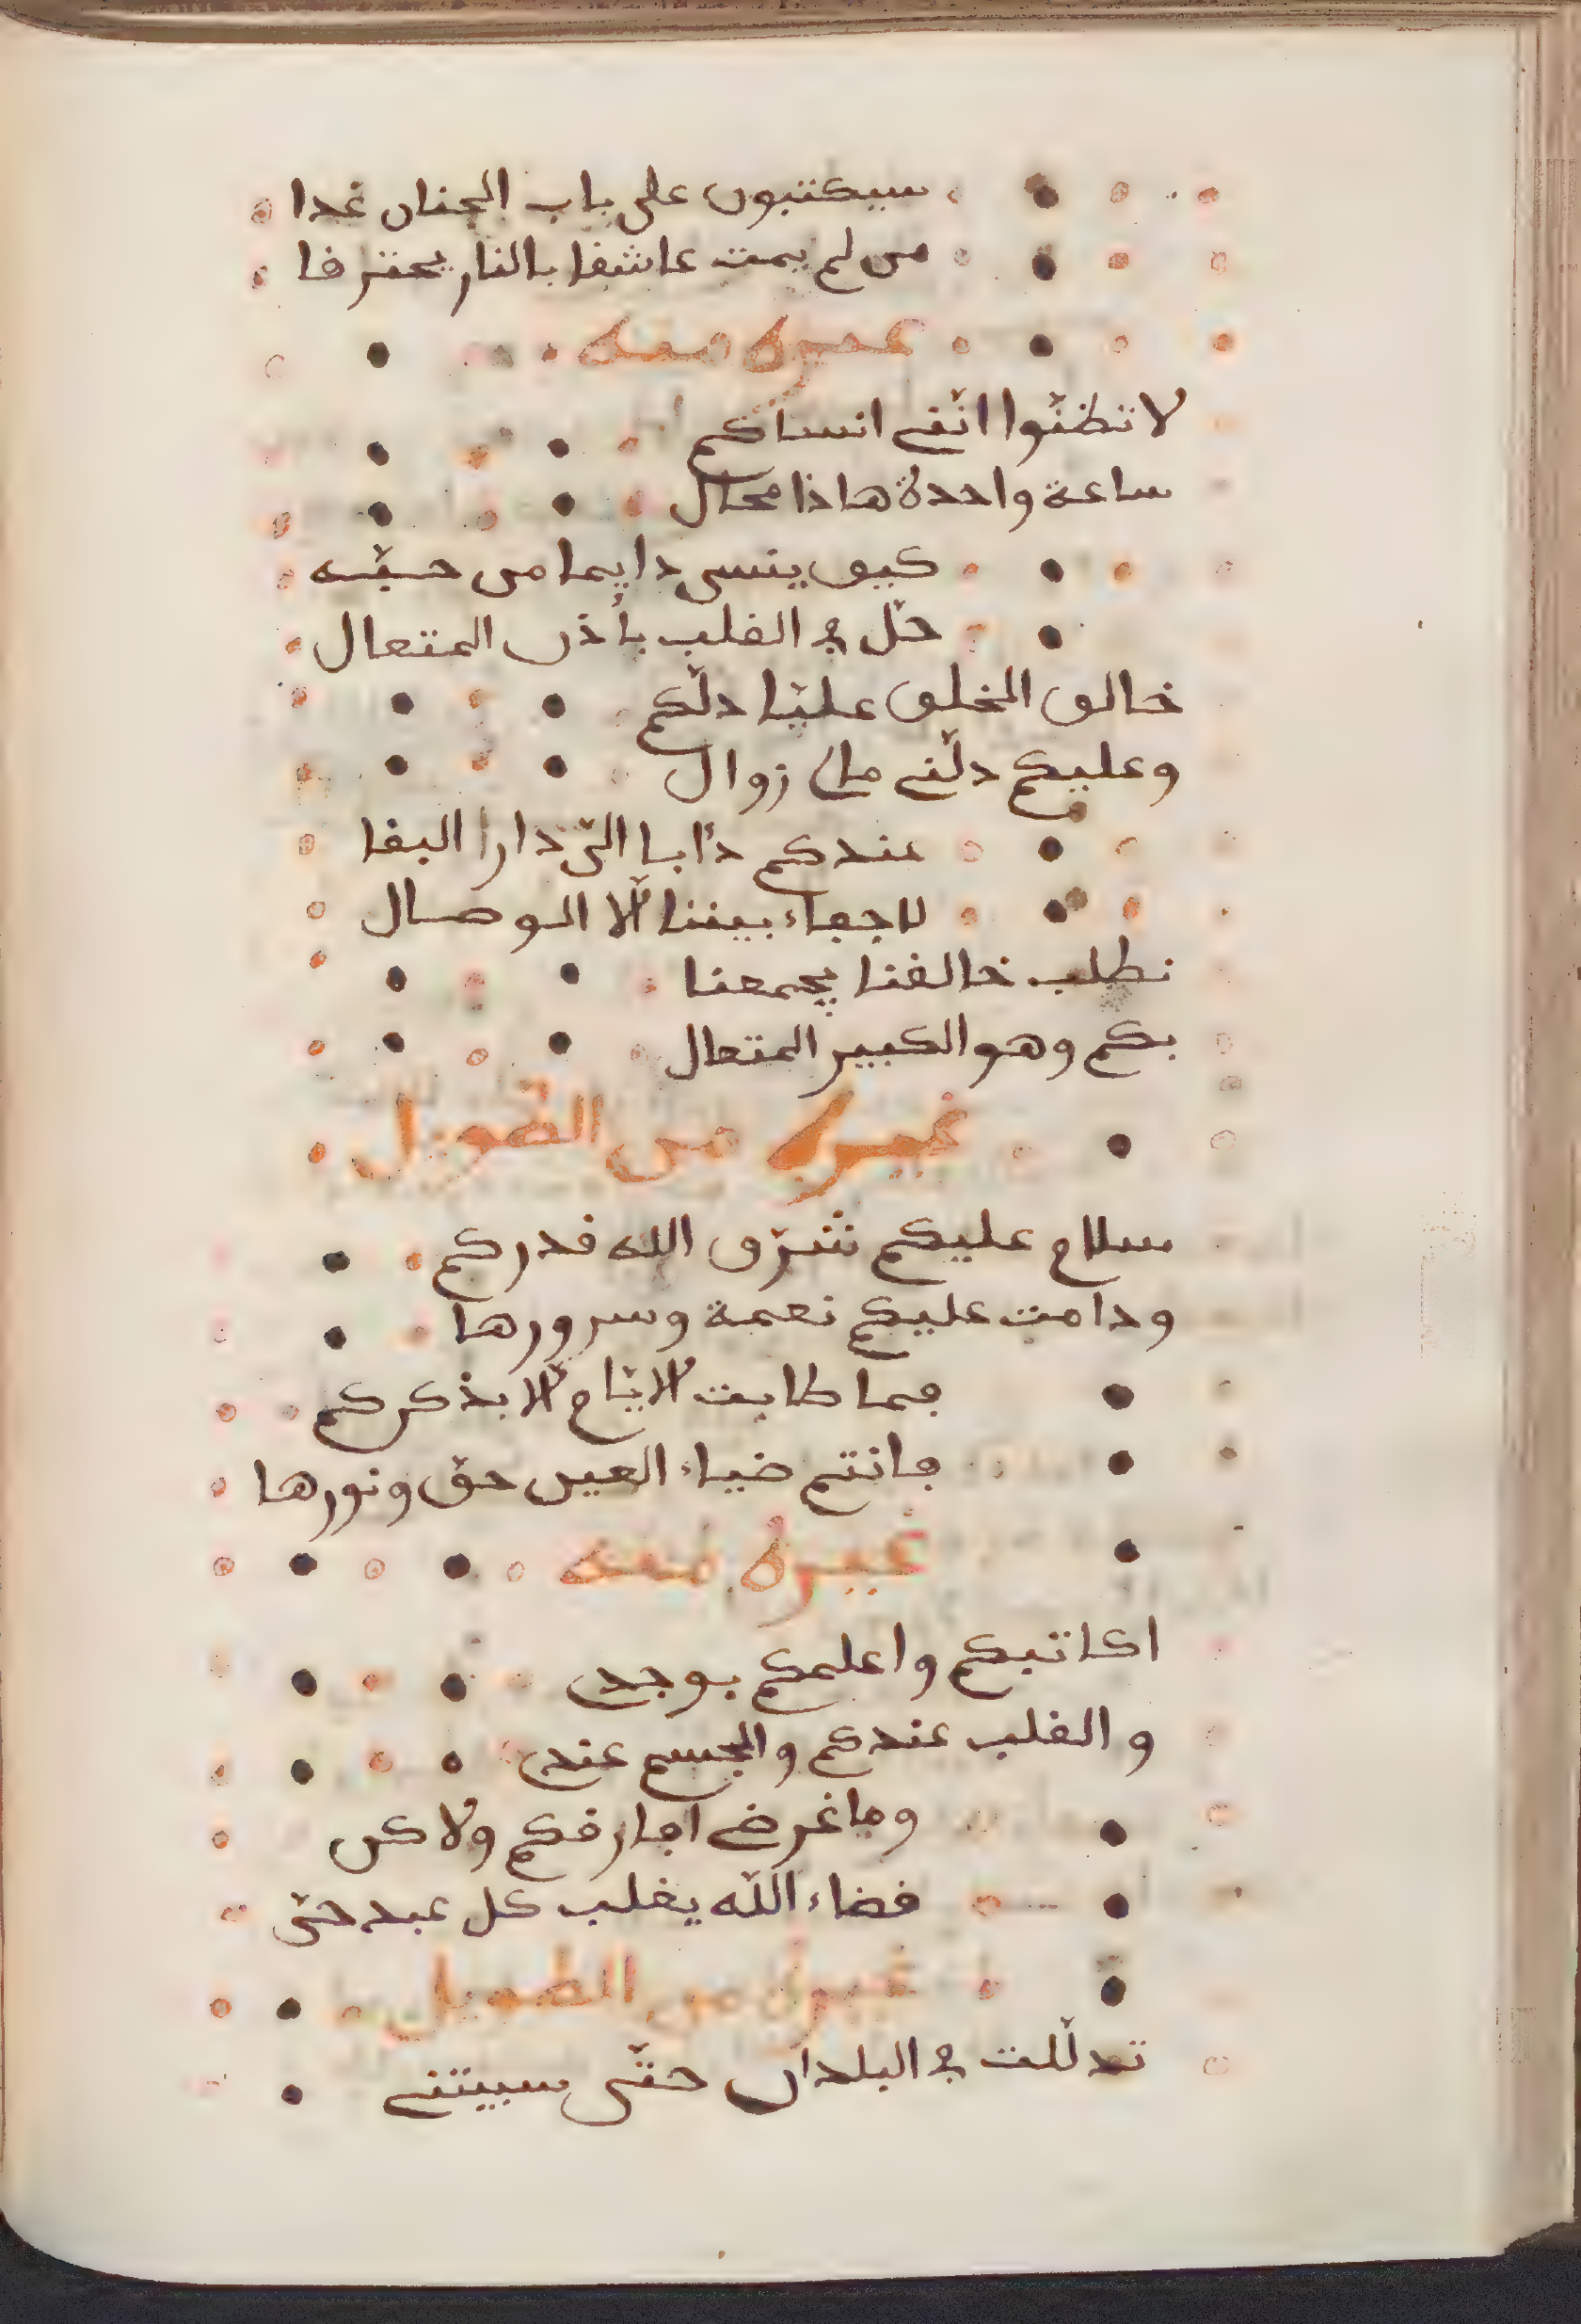 سيكتبون على باب الجنان غدا
من لم يمت عاشقا بالنار يحترقا
غيره منه
لا تظنّوا انّني انساكم
ساعة واحدة هاذا محال
كيف ينسى دايما من حبّه
حلّ في القلب بأذن المتعال
خالق الخلق علينا دلّكم
وعليكم دلّني ما زوال
عندكم دأبا الىّ دار البقا
لا جفاء بيننا الّا الوصال
نطلب خالقنا يجمعنا
بكم وهو الكبير المتعال
غيره من الطويل
سلام عليكم شرّف الله قدركم
ودامت عليكم نعمة وسرورها
فما طابت الايّام الّا بذكركم
فانتم ضياء العين حقّ ونورها
غيره منه
اكاتبكم واعلمكم بوجدي
والقلب عندكم والجسم عندي
وما غرضي افارقكم ولاكن
قضاء اللّه يغلب كل عبد حتّى
غيره من الطويل
تدلّلت في البلدان حتّى سبيتني